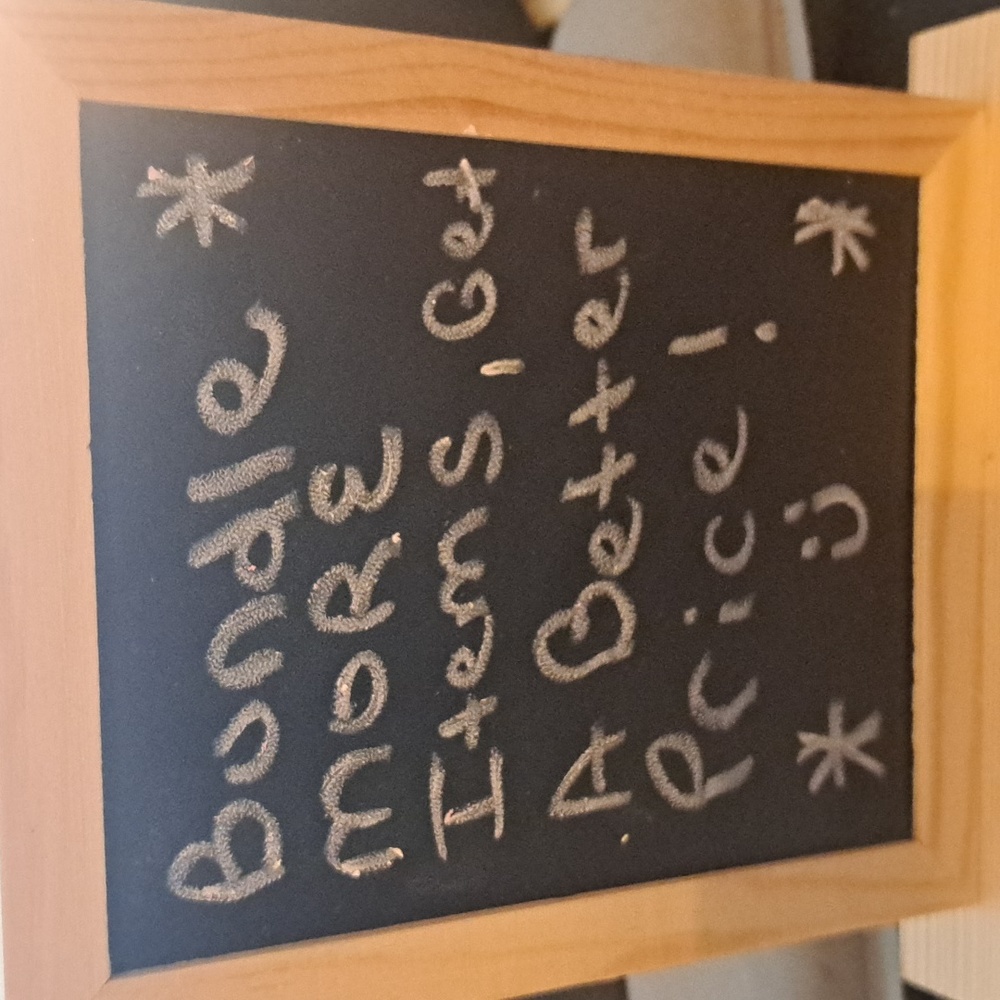 Bundle *
MORE
Items, Get
A Better
Price!
* Ü *